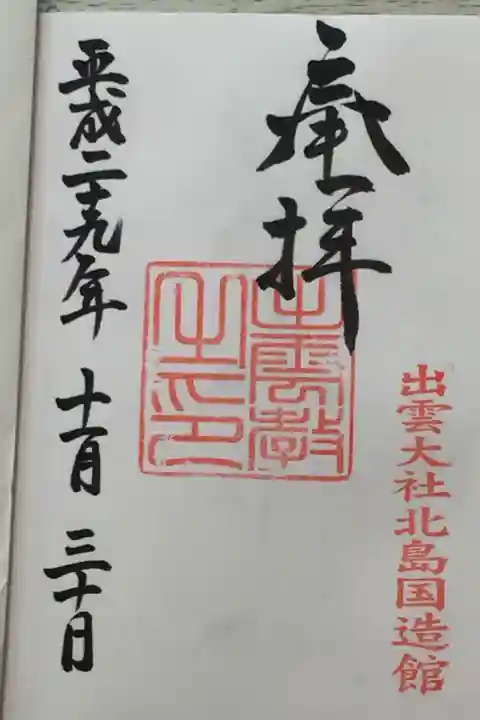 奉拝
出雲大社北島国造館
出雲教
之印
平成二十九年 十一月 三十日